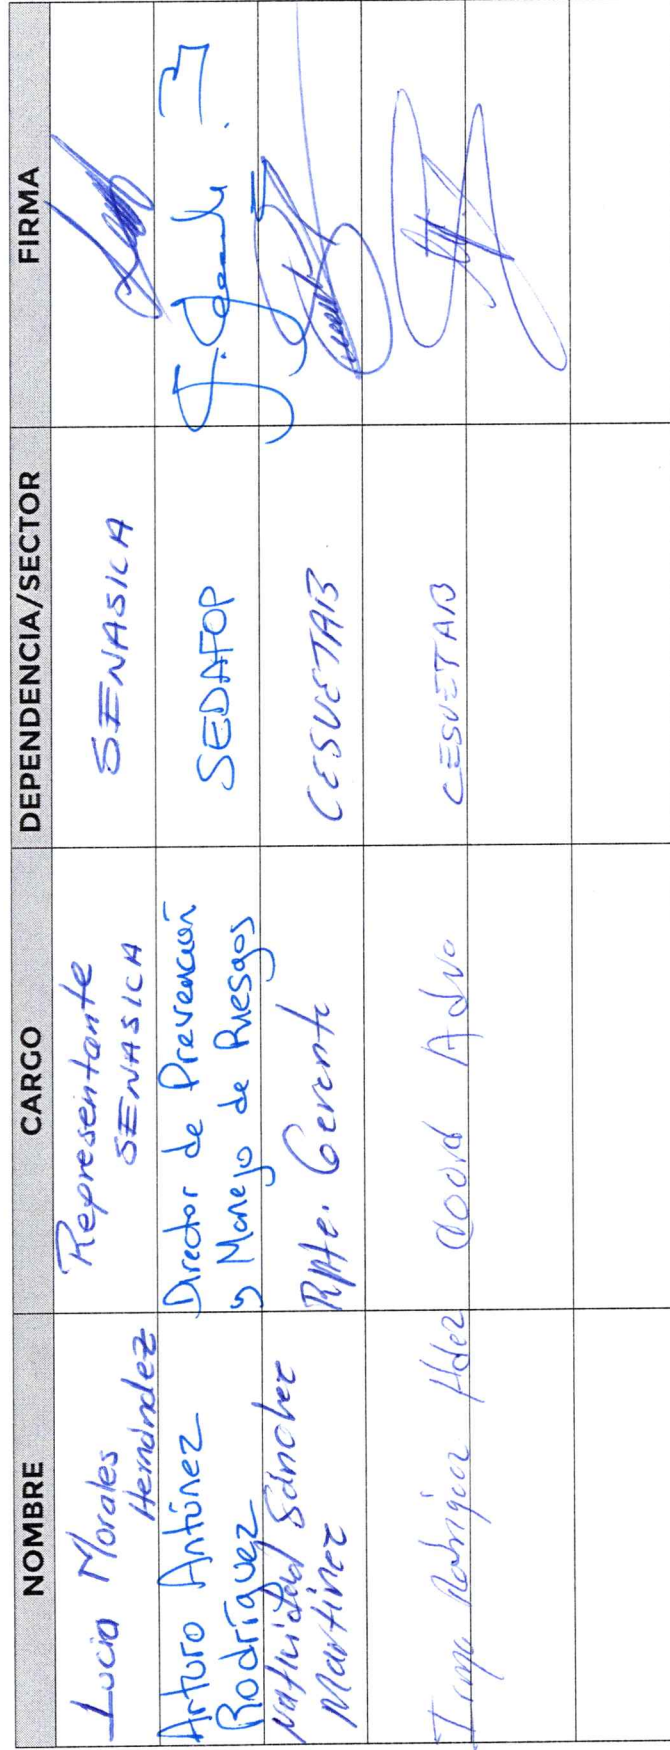 NOMBRE CARGO DEPENDENCIA/SECTOR FIRMA
Lucia Morales
Hernández
Representante
SENASICA
SENASICA
Arturo Antúnez
Rodríguez
Director de Prevención
y Manejo de Riesgos
SEDAFOP
Natividad Sánchez
Martínez
Rpte. Gerente
CESVETAB
Irma Rodríguez Hdez
Coord Adva
CESVETAB